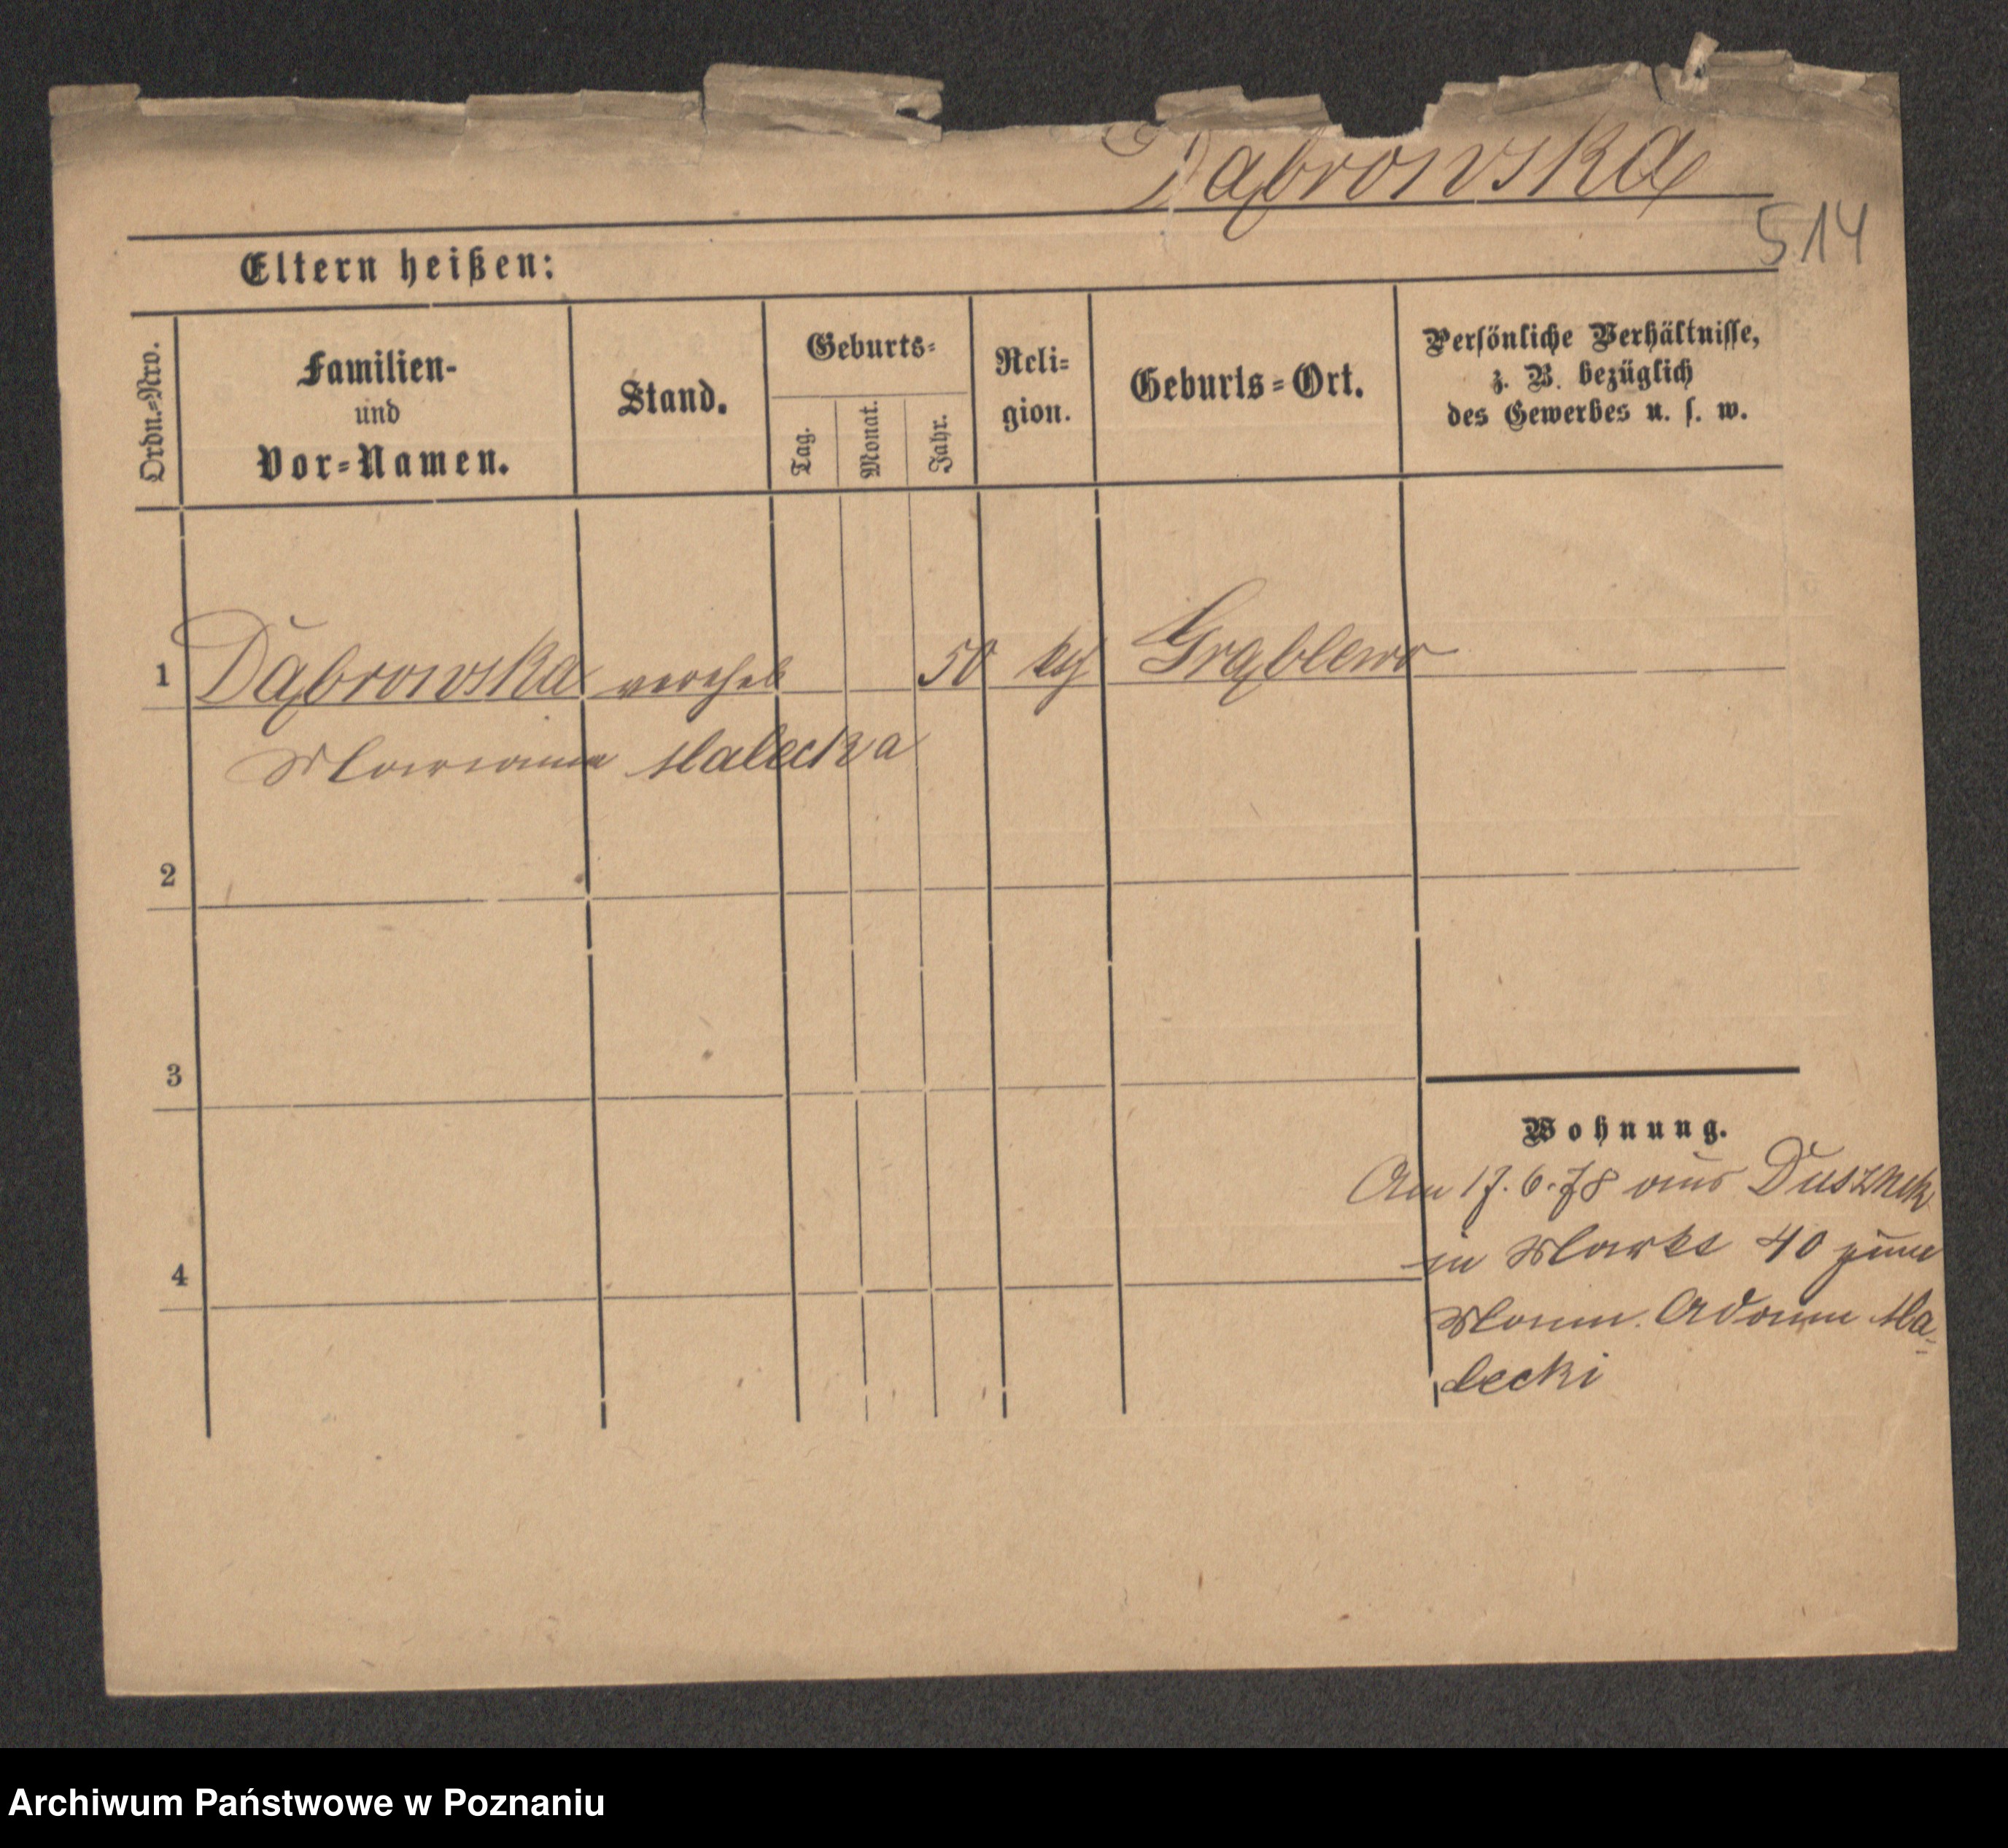 Dąbrowska
514
Eltern heißen:
Ordn.-Nro.
Familien-
und
Vor-Namen.
Stand.
Geburts-
Tag.
Monat.
Jahr.
Reli-
gion.
Geburts-Ort.
Persönliche Verhältnisse,
z. B. bezüglich
des Gewerbes u. s. w.
1 Dąbrowska verehel 50 kth Grąblewo
Marianna Malecka
2
3
4
Wohnung.
Am 17.6.78 aus Dusznik
in Markt 40 zum
Mann. Adam Ma-
lecki
Archiwum Państwowe w Poznaniu